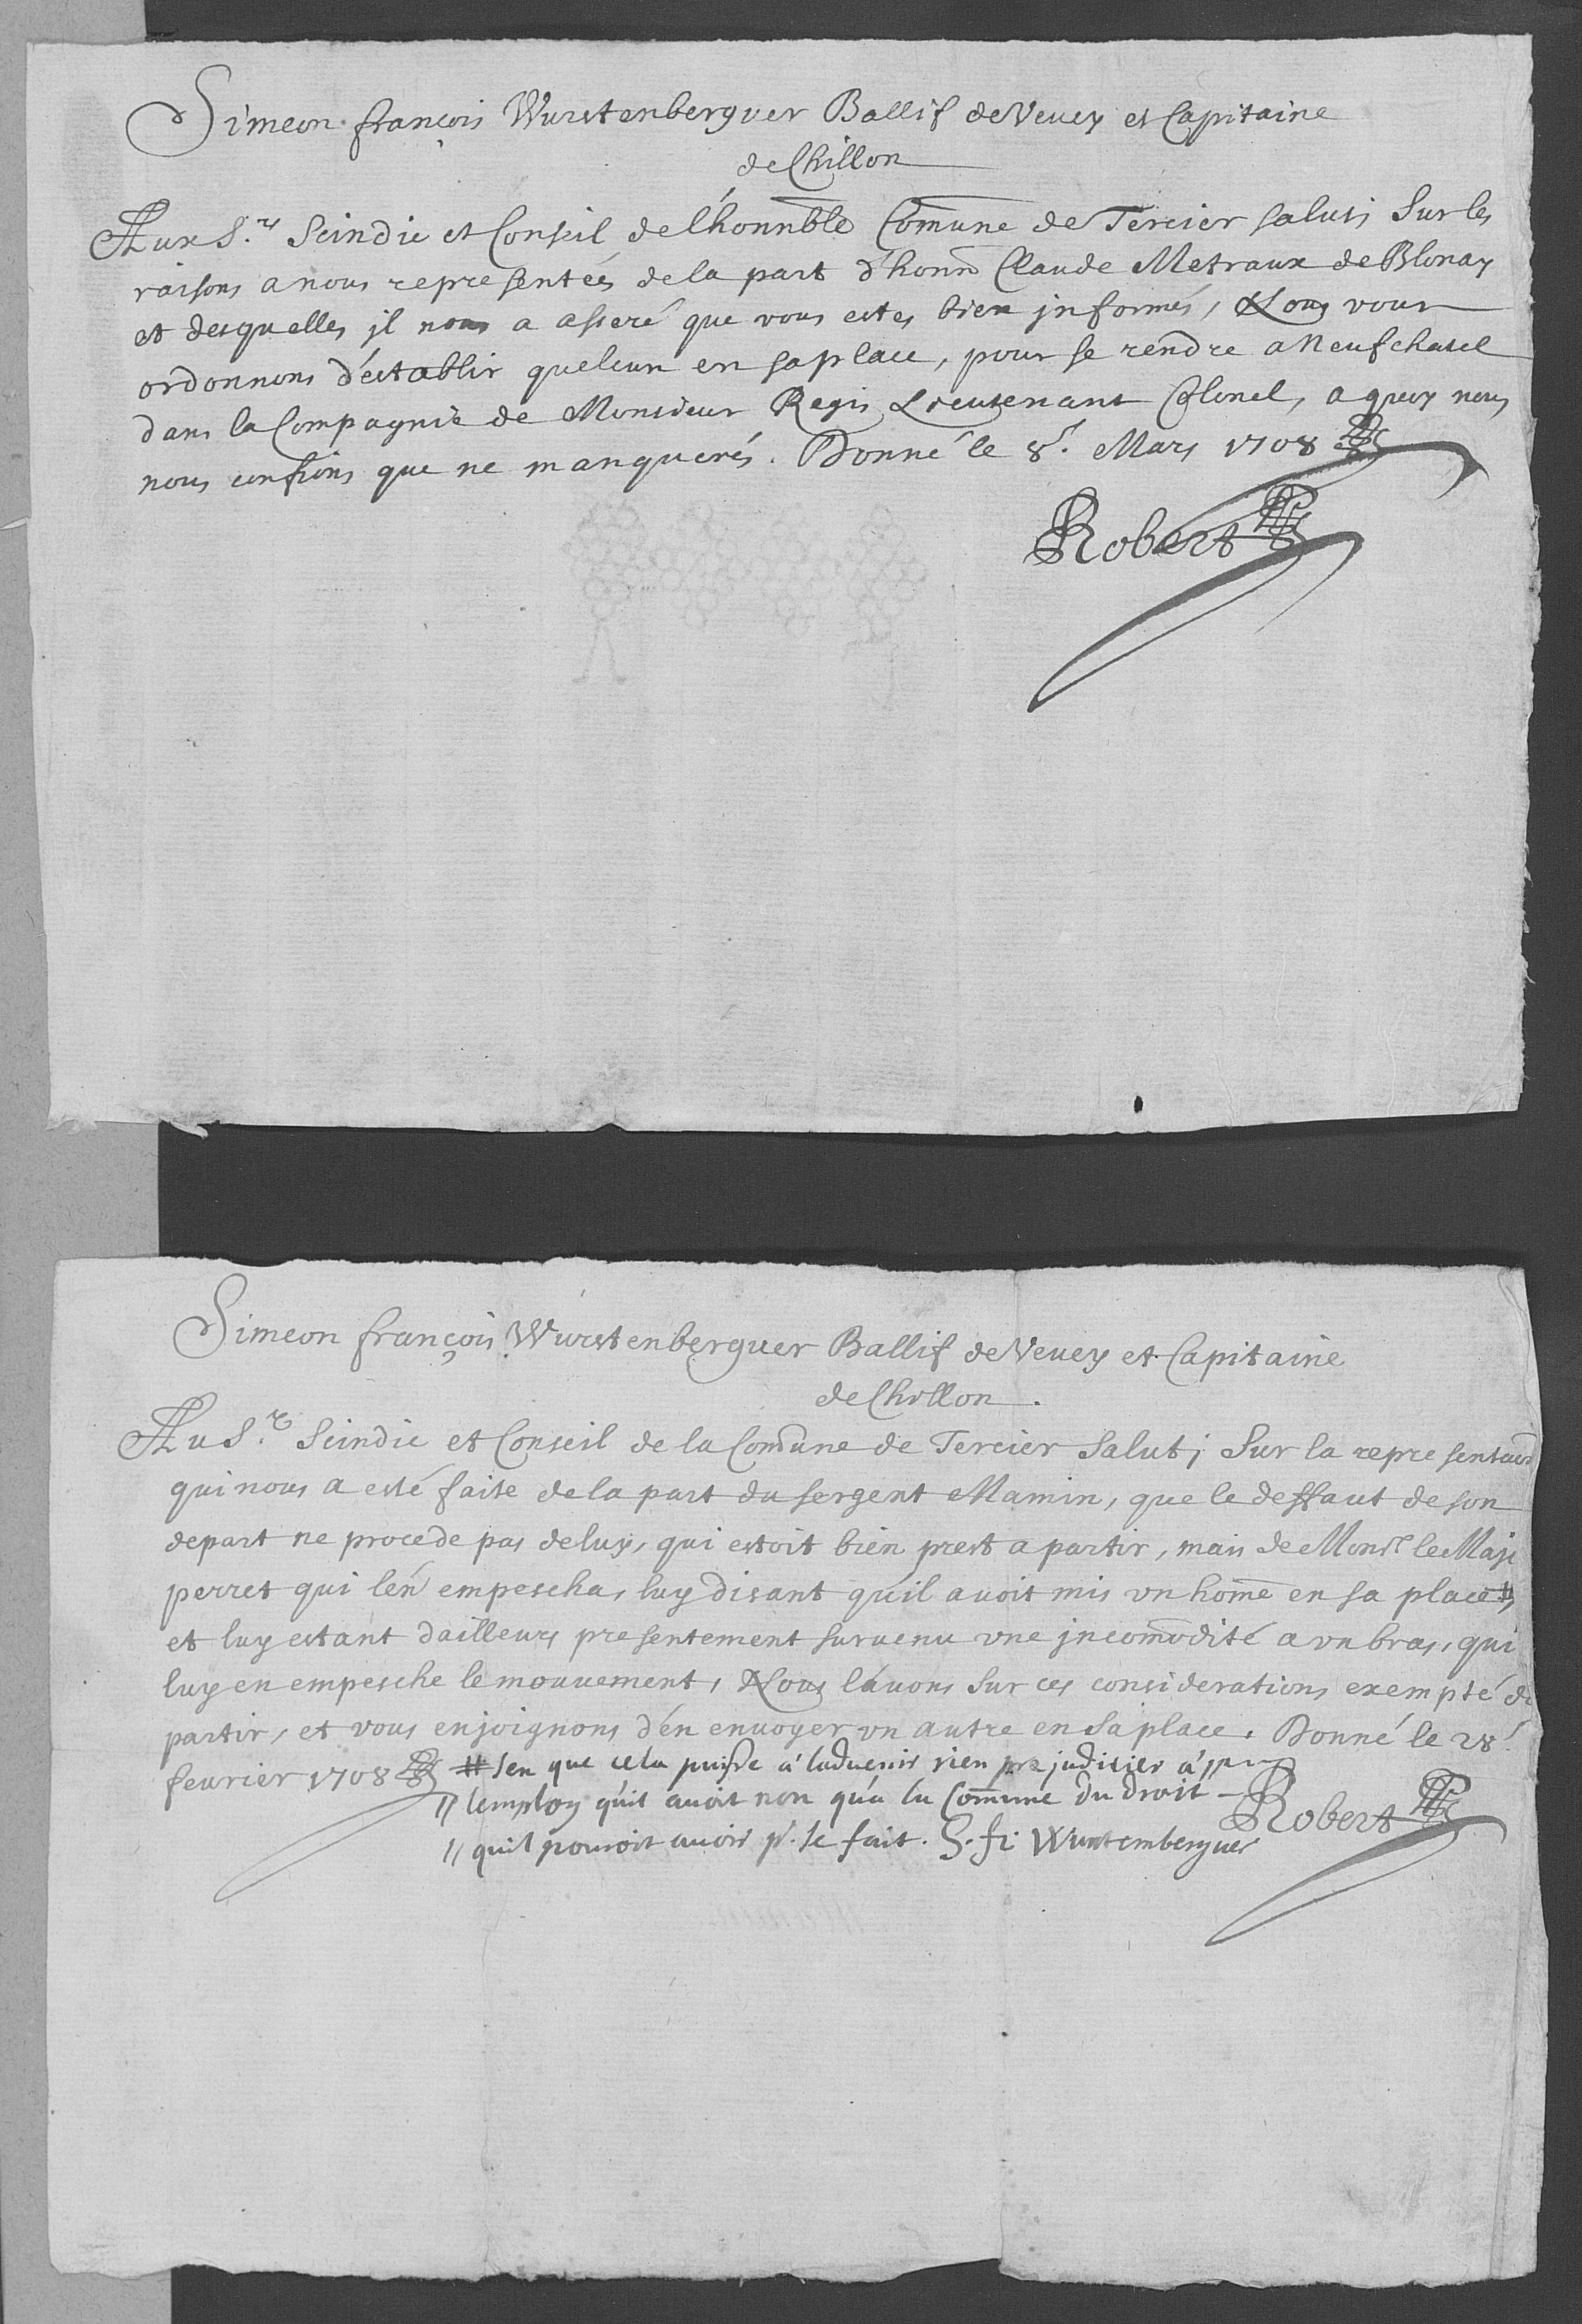 Simeon françois Wurstenberguer Ballif de Vevey et Capitaine
de Chillon
Aux S.rs Scindic et Conseil de l'honnble Comune de Tercier salut; Sur les
raisons a nous representées de la part d'honn Claude Metraux de Blonay
et desquelles jl nous a asseré que vous estes bien jnformés, Nous vous
ordonnons d'establir quelcun en sa place, pour se rendre a Neufchatel
dans la Compagnie de Monsieur Regis Lieutenant Colonel, a quoy nous
nous confions que ne manquerés. Donné le 8.e Mars 1708
Robert
Simeon françois Wurstenberguer Ballif de Vevey et Capitaine
de Chillon.
Au S.r Scindic et Conseil de la Comune de Tercier Salut; Sur la representaon
qui nous a esté faite de la part du sergent Mamin, que le deffaut de son
depart ne procede pas de luy, qui estoit bien prest a partir, mais de Monsr le Maj
perret qui l'en empescha, luy disant qu'il auoit mis vn home en sa place #,
et luy estant dailleurs presentement suruenu vne jncomodité a vn bras, qui
luy en empesche le mouuement, Nous l'auons sur ces considerations exempté de
partir, et vous enjoignons d'en enuoyer vn autre en sa place. Donné le 28.e
feurier 1708
# sen que cela puisse a l'aduenir rien prejudicier a
// lemploy qu'it avoit non qu'a la Comune du droit
// quil pouroit avoir pr. le fait. S. fr: Wurstemberguer
Robert